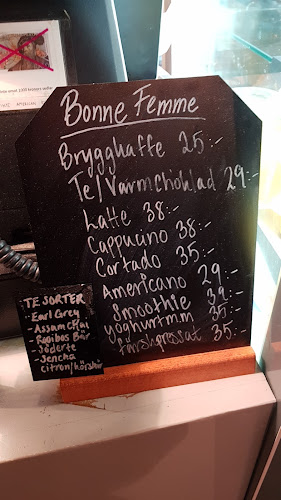 Bonne Femme
Bryggkaffe 25:-
Te/Varmchoklad 29:-
Latte 38:-
Cappucino 38:-
Cortado 35:-
Americano 29:-
Smoothie 39:-
yoghurt m.m 35:-
färskpressat 35:-
TE SORTER
- Earl Grey
- Assam
- Rooibos Bär
- Söderte
- Sencha
citron/